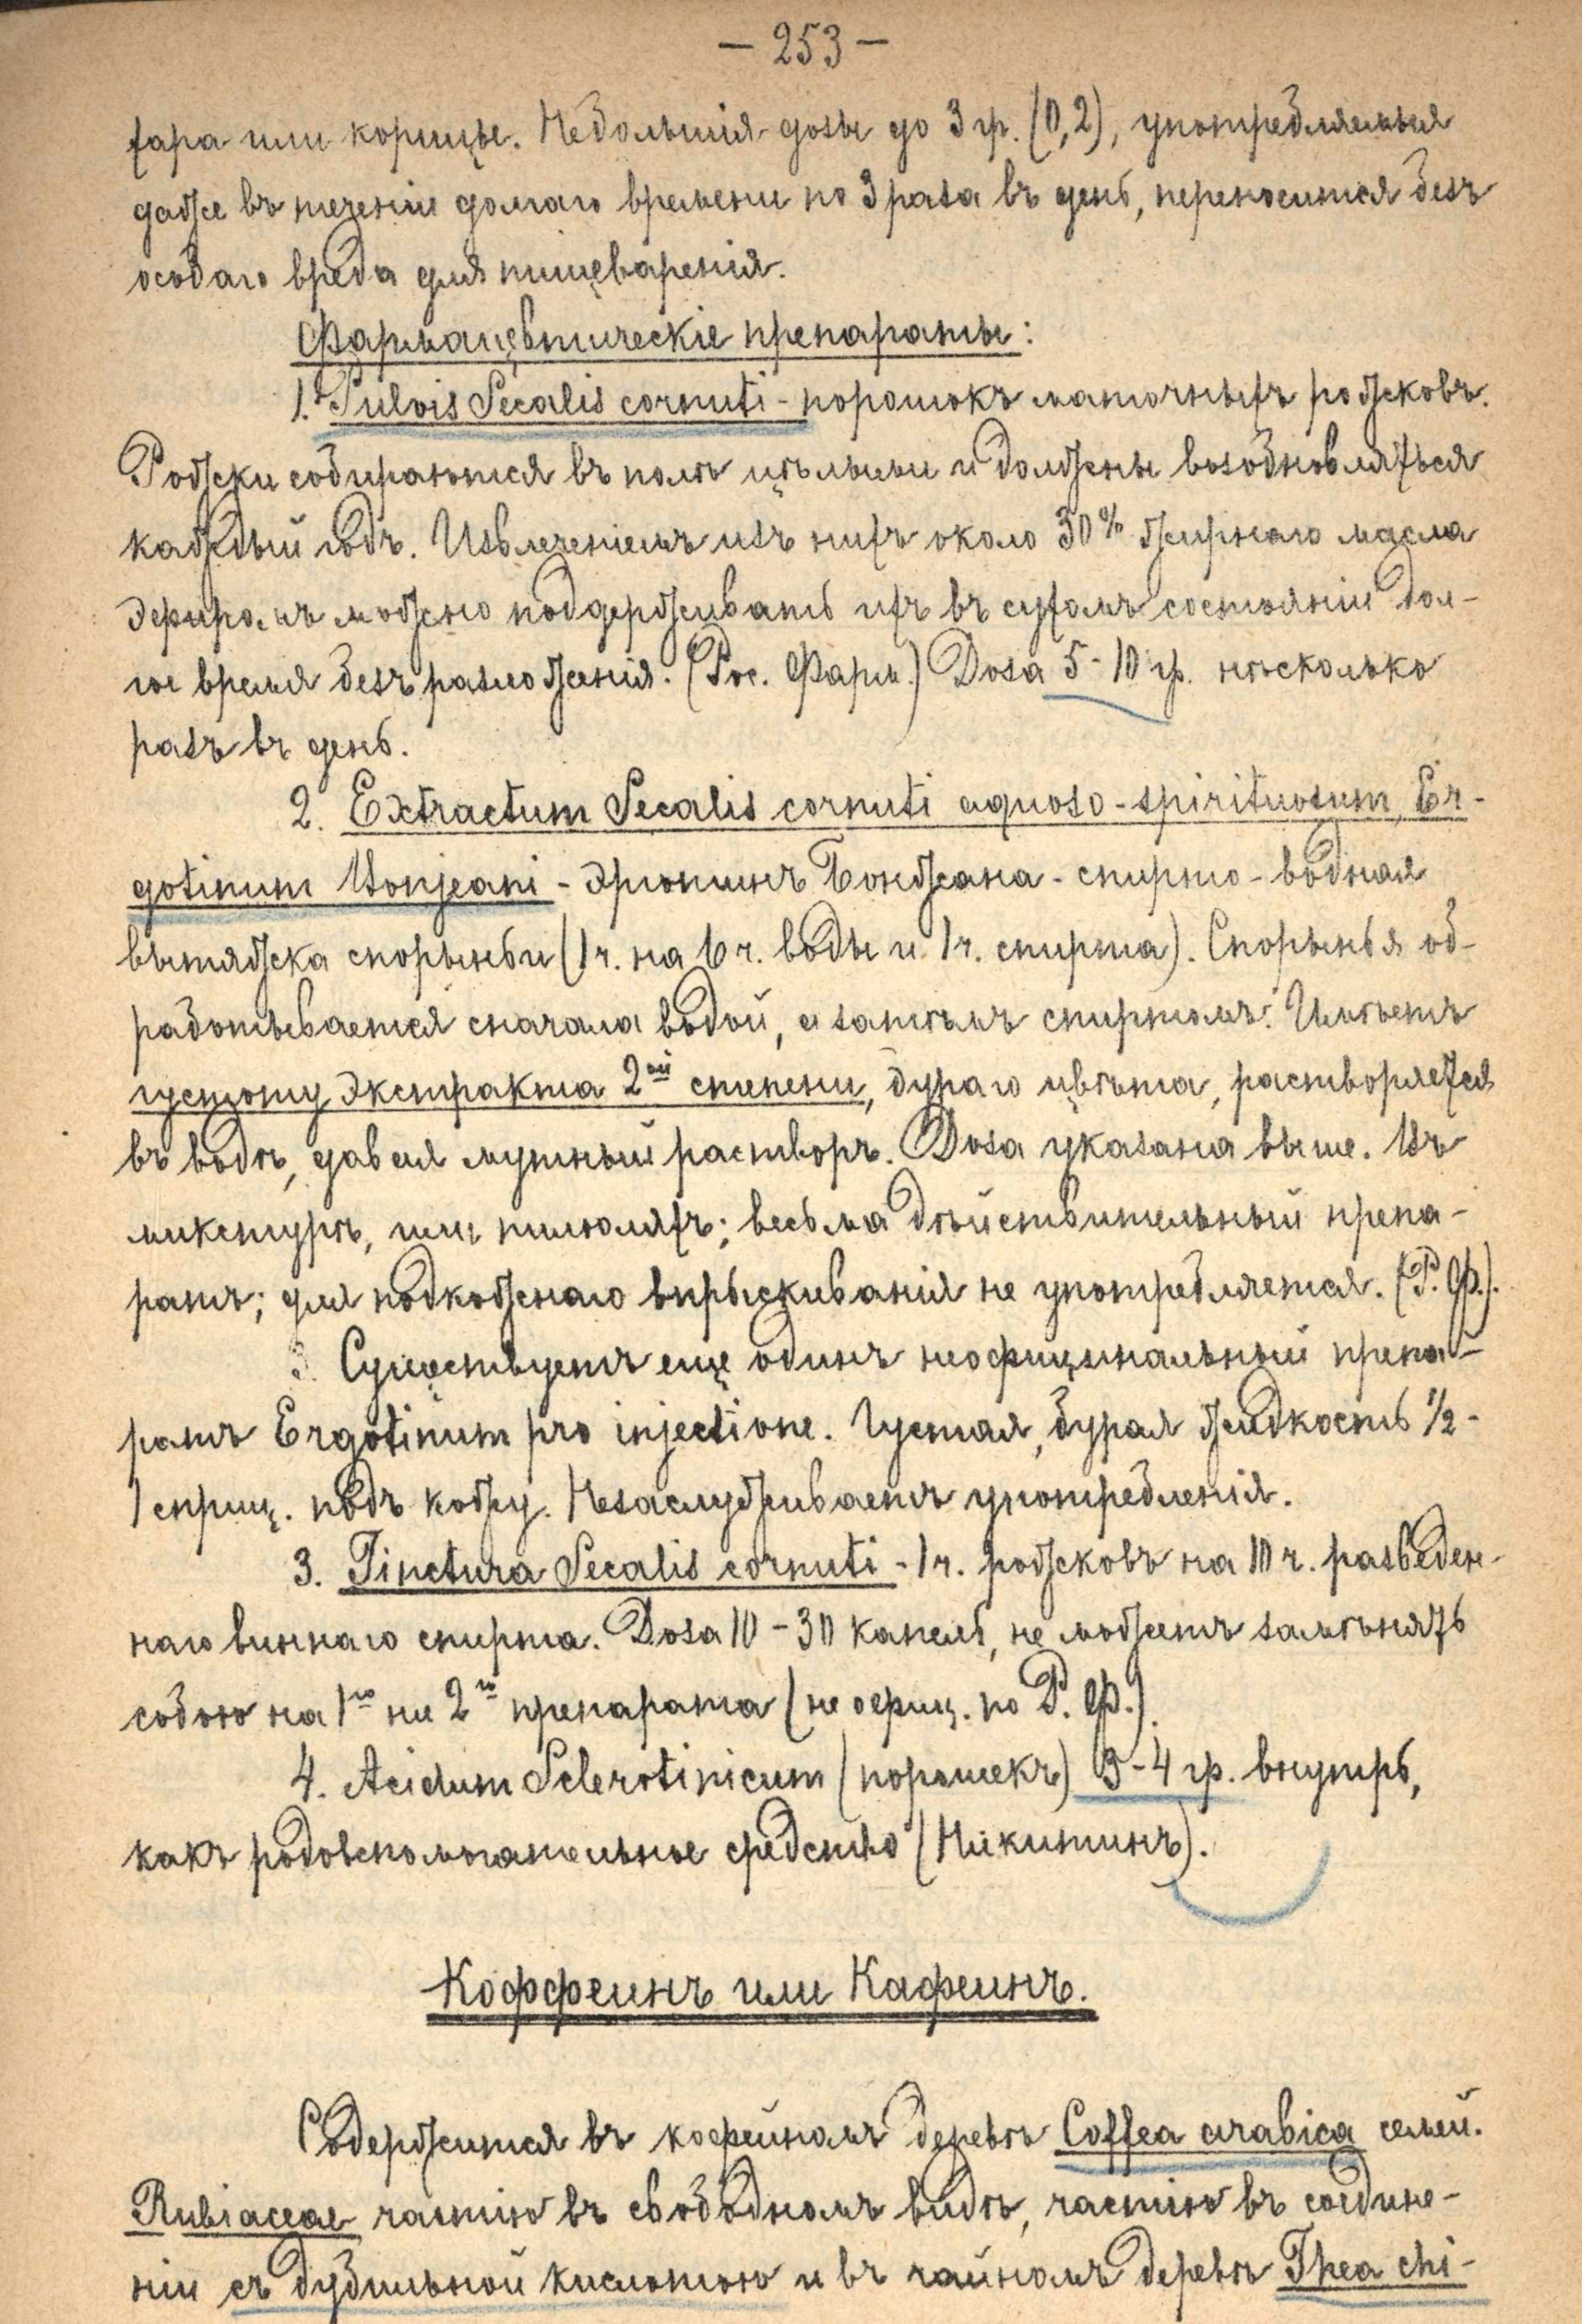 — 253 —
хара или корицы. Небольшія дозы до 3 гр. (0,2), употребляемыя
даже въ теченіи долгаго времени по 3 раза въ день, переносится безъ
особаго вреда для пищеваренія.
Фармацевтическіе препараты:
1. Pulvis Secalis cornuti - порошокъ маточныхъ рожковъ.
Рожки собираются въ полѣ цѣлыми и должны возобновляться
каждый годъ. Извлеченіемъ изъ нихъ около 30% жирнаго масла
эфиромъ можно поддерживать ихъ въ сухомъ состояніи дол-
гое время безъ разложенія. (Рос. Фарм.) Доза 5-10 гр. нѣсколько
разъ въ день.
2. Extractum Secalis cornuti aquoso-spirituosum, Er-
gotinum Bonjeani - Эрготинъ Бонжана - спирто-водная
вытяжка спорыньи (1 ч. на 6 ч. воды и 1 ч. спирта). Спорынья об-
работывается сначала водой, а затѣмъ спиртомъ. Имѣетъ
густоту экстракта 2ой степени, бураго цвѣта, растворяется
въ водѣ, давая мутный растворъ. Доза указана выше. Въ
микстурѣ, или пилюляхъ; весьма дѣйствительный препа-
ратъ; для подкожнаго впрыскиванія не употребляется. (Р. Ф.).
3. Существуетъ еще одинъ неофицинальный препа-
ратъ Ergotinum pro injectione. Густая, бурая жидкость ½-
1 сприц. подъ кожу. Незаслуживаетъ употребленія.
3. Tinctura Secalis cornuti - 1 ч. рожковъ на 10 ч. разведен-
наго виннаго спирта. Доза 10-30 капель, не можетъ замѣнять
собою на 1го ни 2го препарата (не офиц. по Р. Ф.).
4. Acidum Sclerotinicum (порошекъ) 3-4 гр. внутрь,
какъ родовспомогательное средство (Никитинъ).
Коффеинъ или Кафеинъ.
Содержится въ кофейномъ деревѣ Coffea arabica семей.
Rubiaceae частію въ свободномъ видѣ, частію въ соедине-
ніи съ дубильной кислотою и въ чайномъ деревѣ Thea chi-